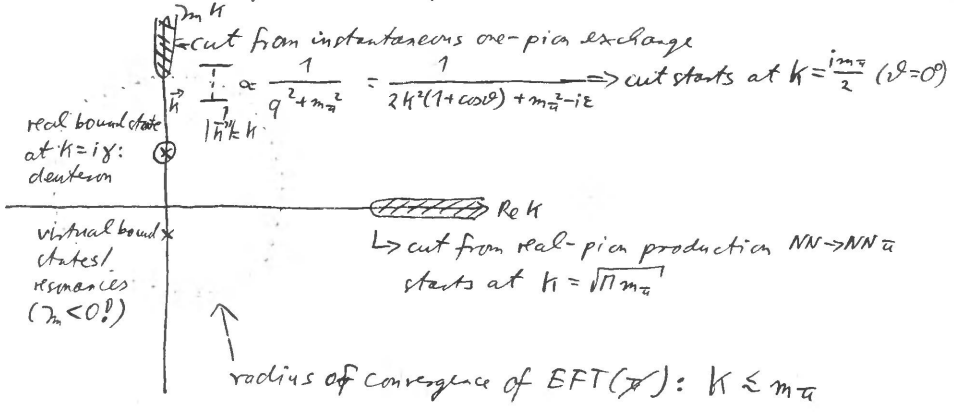 Im K
cut from instantaneous one-pion exchange
∝ 1/(q²+mπ²) = 1/(2k²(1+cosϑ)+mπ²-iε) ⇒ cut starts at K = imπ/2 (ϑ=0°)
|k⃗|=k
k⃗
real bound state
at K=iγ:
deuteron
Re K
virtual bound
states/
resonances
(Im<0!)
↳ cut from real-pion production NN→NNπ
starts at K = √(M mπ)
radius of convergence of EFT(π̸): K ≲ mπ